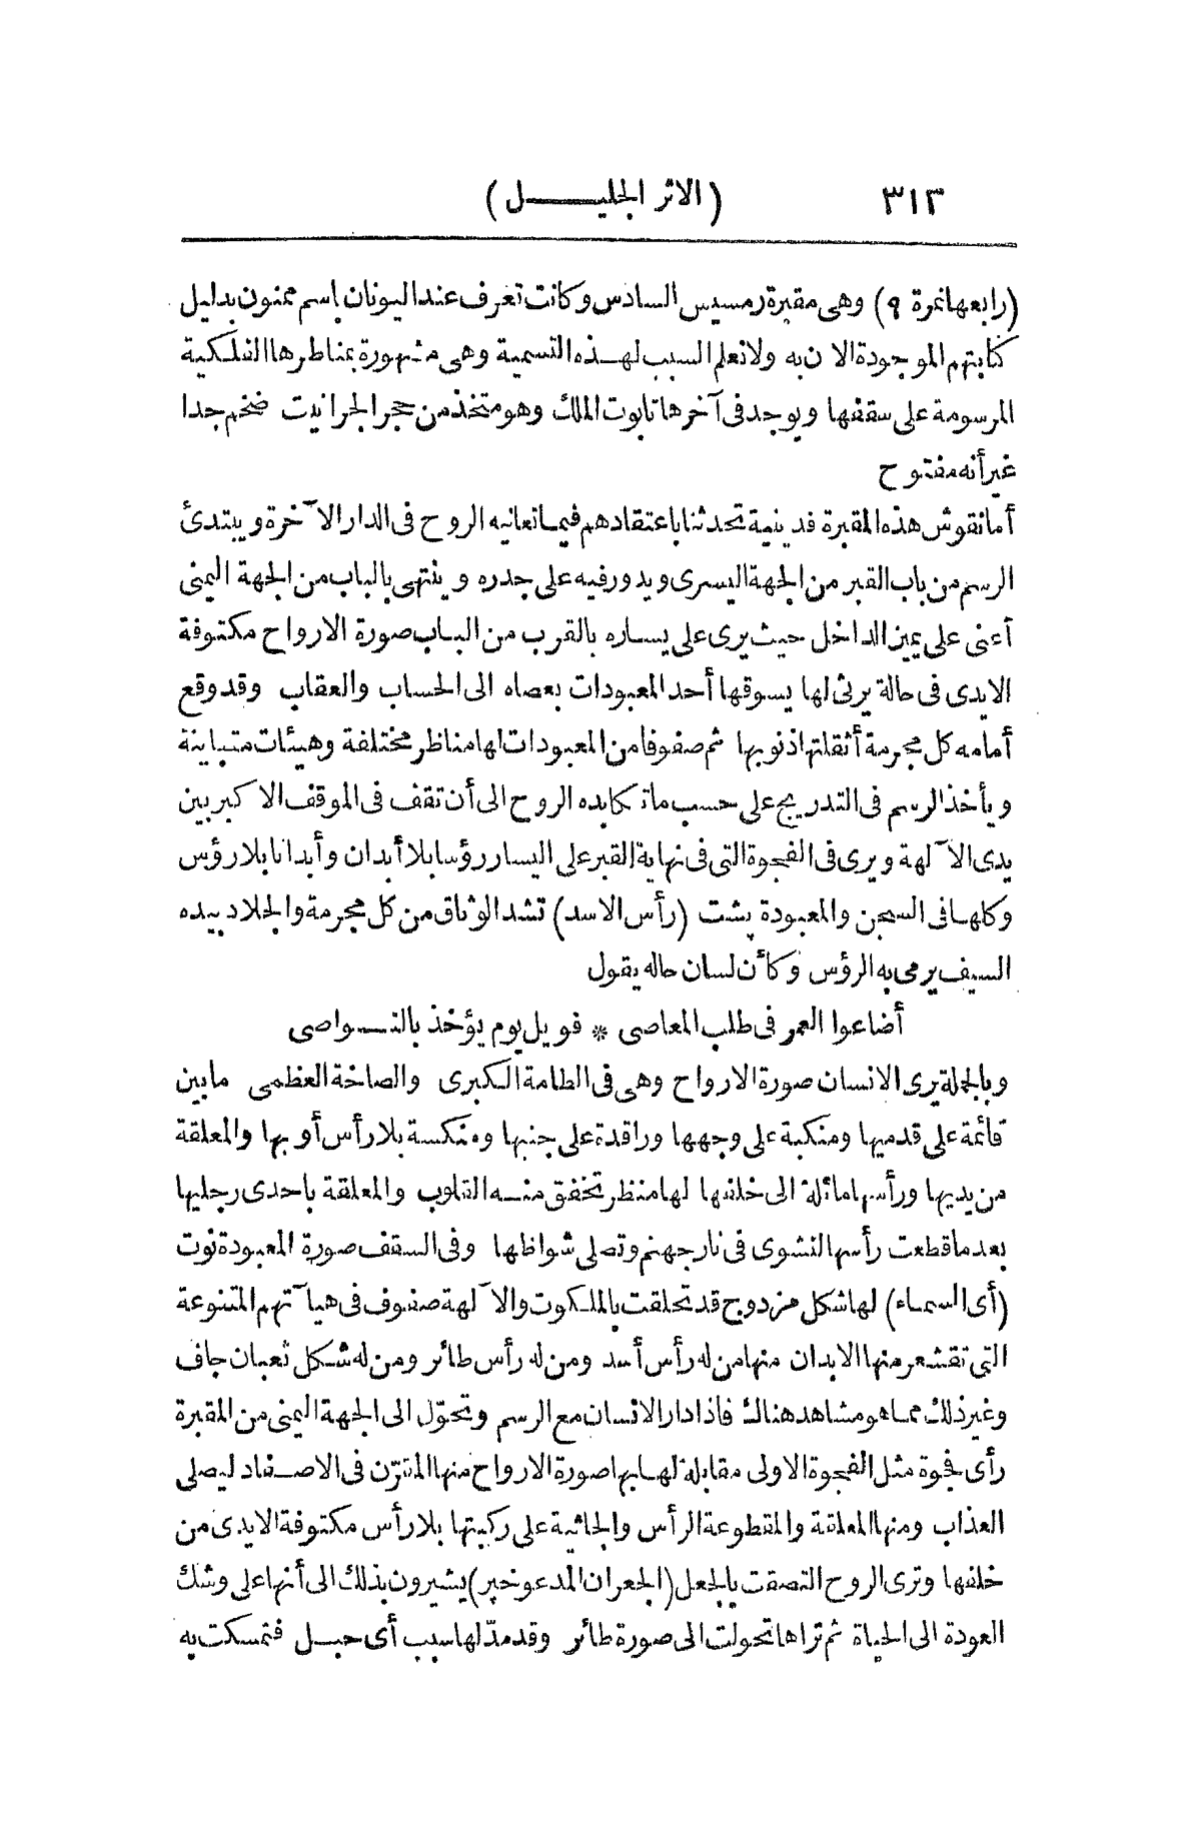 ٣١٣ (الاثر الجليـــل)
(رابعها نمرة ٩) وهى مقبرة رمسيس السادس وكانت تعرف عند اليونان باسم ممنون بدليل
كتابتهم الموجودة الا ن به ولا نعلم السبب لهـذه التسمية وهى مشهورة بمناظرها الفلكية
المرسومة على سقفها ويوجد فى آخرها تابوت الملك وهو متخذ من حجر الجرانيت ضخم جدا
غير أنه مفتوح
أما نقوش هذه المقبرة فدينية تحدثنا باعتقادهم فيما تعانيه الروح فى الدار الا ٓخرة ويبتدئ
الرسم من باب القبر من الجهة اليسرى ويدور فيه على جدره وينتهى بالباب من الجهة اليمنى
أعنى على يمين الداخل حيث يرى على يساره بالقرب من الباب صورة الارواح مكتوفة
الايدى فى حالة يرثى لها يسوقها أحد المعبودات بعصاه الى الحساب والعقاب وقد وقع
أمامه كل مجرمة أثقلتها ذنوبها ثم صفوفا من المعبودات لها مناظر مختلفة وهيئات متباينة
ويأخذ الرسم فى التدريج على حسب ما تكابده الروح الى أن تقف فى الموقف الاكبر بين
يدى الا ٓلهة ويرى فى الفجوة التى فى نهاية القبر على اليسار رؤسا بلا أبدان وأبدانا بلا رؤس
وكلها فى السجن والمعبودة پشت (رأس الاسد) تشد الوثاق من كل مجرمة والجلاد بيده
السيف يرمى به الرؤس وكأن لسان حاله يقول
أضاعوا العمر فى طلب المعاصى * فويل يوم يؤخذ بالنـــواصى
وبالجملة يرى الانسان صورة الارواح وهى فى الطامة الكبرى والصاخة العظمى ما بين
قائمة على قدميها ومنكبة على وجهها وراقدة على جنبها ومنكسة بلا رأس أو بها والمعلقة
من يديها ورأسها مائلة الى خلفها لها منظر تخفق منـه القلوب والمعلقة باحدى رجليها
بعد ما قطعت رأسها لتشوى فى نار جهنم وتصلى شواظها وفى السقف صورة المعبودة نوت
(أى السماء) لها شكل مزدوج قد تحلقت بالملكوت والا ٓلهة صفوف فى هيا ٓتهم المتنوعة
التى تقشعر منها الابدان منها من له رأس أسد ومن له رأس طائر ومن له شكل ثعبان جاف
وغير ذلك مما هو مشاهد هناك فاذا دار الانسان مع الرسم وتحوّل الى الجهة اليمنى من المقبرة
رأى فجوة مثل الفجوة الاولى مقابلة لها بها صورة الارواح منها المقرّن فى الاصفاد ليصلى
العذاب ومنها المعلقة والمقطوعة الرأس والجاثية على ركبتها بلا رأس مكتوفة الايدى من
خلفها وترى الروح التصقت بالجعل (الجعران المدعو خپر) يشيرون بذلك الى أنها على وشك
العودة الى الحياة ثم تراها تحولت الى صورة طائر وقد مدّ لها سبب أى حبـل فتمسكت به